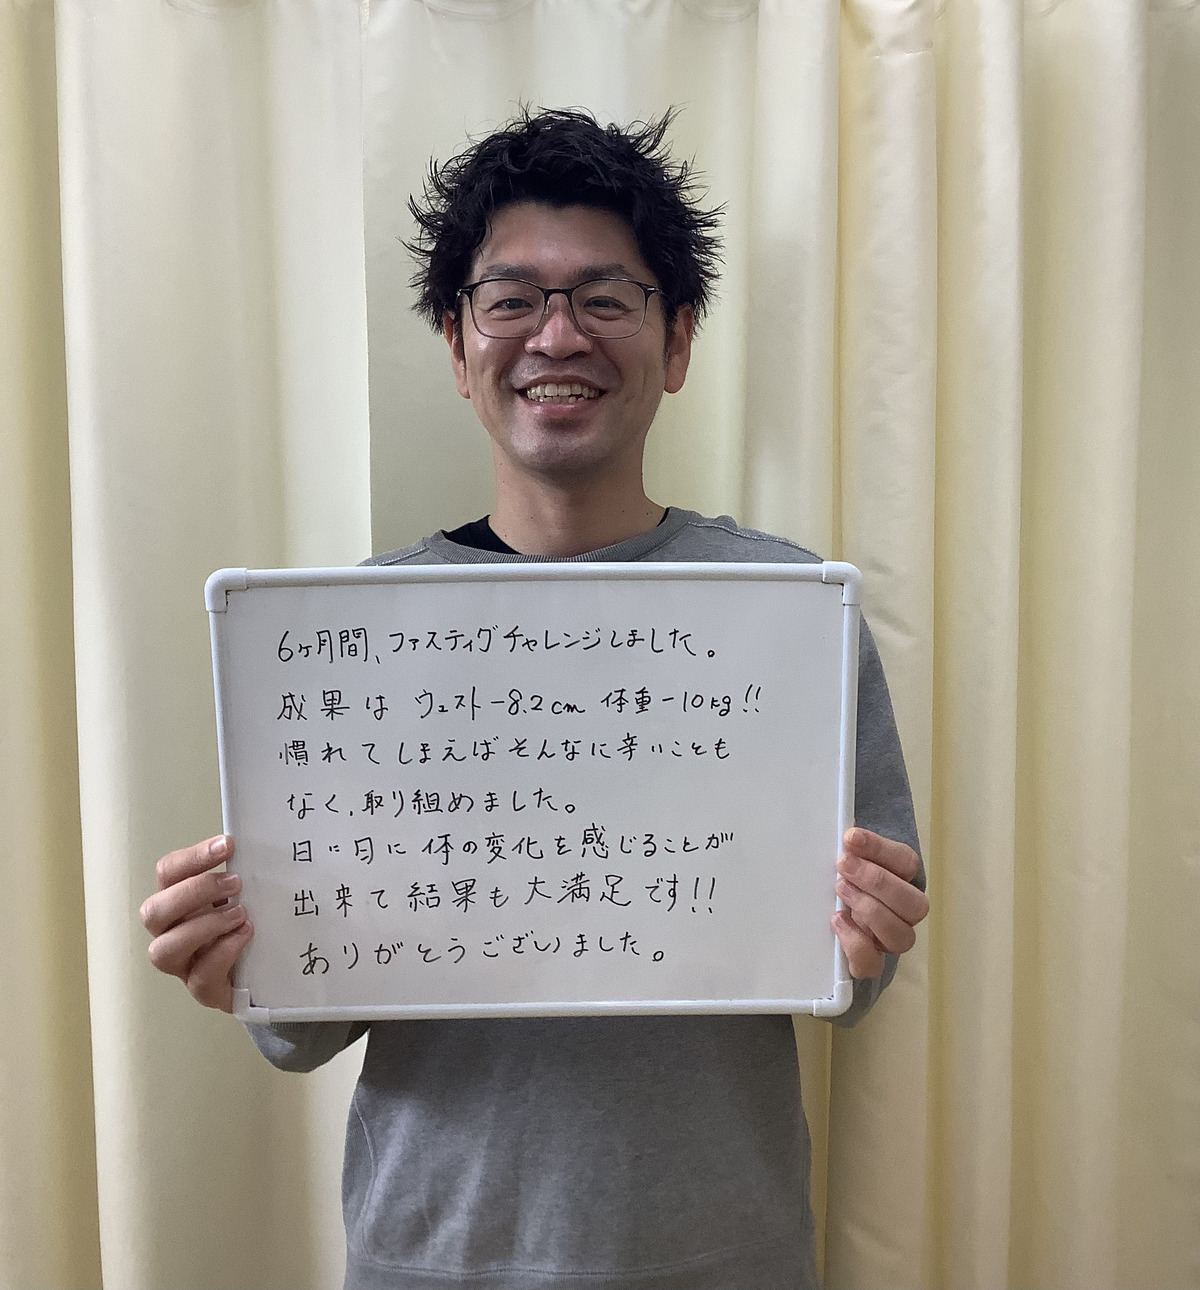 6ヶ月間、ファスティグチャレンジしました。
成果は ウェスト-8.2cm 体重-10kg!!
慣れてしまえばそんなに辛いことも
なく、取り組めました。
日に日に体の変化を感じることが
出来て結果も大満足です!!
ありがとうございました。